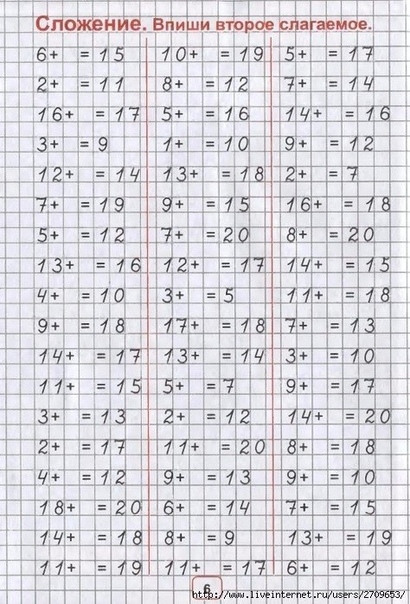 Сложение. Впиши второе слагаемое.
6+ =15 10+ =19 5+ =17
2+ =11 8+ =12 7+ =14
16+ =17 5+ =16 14+ =16
3+ =9 1+ =10 9+ =12
12+ =14 13+ =18 2+ =7
7+ =19 9+ =15 16+ =18
5+ =12 7+ =20 8+ =20
13+ =16 12+ =17 14+ =15
4+ =10 3+ =5 11+ =18
9+ =18 17+ =18 7+ =13
14+ =17 13+ =14 3+ =10
11+ =15 5+ =7 9+ =17
3+ =13 2+ =12 14+ =20
2+ =17 11+ =20 8+ =18
4+ =12 9+ =13 9+ =10
18+ =20 6+ =14 7+ =15
14+ =18 8+ =9 13+ =19
11+ =19 11+ =17 6+ =12
6
http://www.liveinternet.ru/users/2709653/